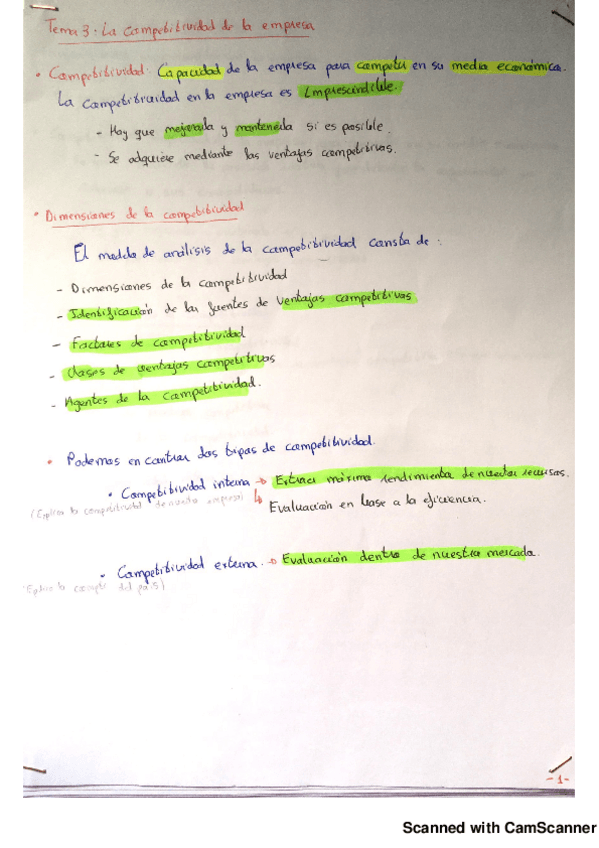 Tema 3: La Competitividad de la empresa
• Competitividad: Capacidad de la empresa para competir en su medio económico.
La competitividad en la empresa es imprescindible.
- Hay que mejorarla y mantenerla si es posible.
- Se adquiere mediante las ventajas competitivas.
• Dimensiones de la competitividad
El modelo de análisis de la competitividad consta de:
- Dimensiones de la competitividad
- Identificación de las fuentes de ventajas competitivas
- Factores de competitividad
- Clases de ventajas competitivas
- Agentes de la competitividad.
• Podemos encontrar dos tipos de competitividad.
• Competitividad interna → Extraer máximo rendimiento de nuestros recursos.
(Explica la competitividad de nuestra empresa) ↳ Evaluación en base a la eficiencia.
• Competitividad externa. → Evaluación dentro de nuestro mercado.
(Explica la compet del país)
-1-
Scanned with CamScanner